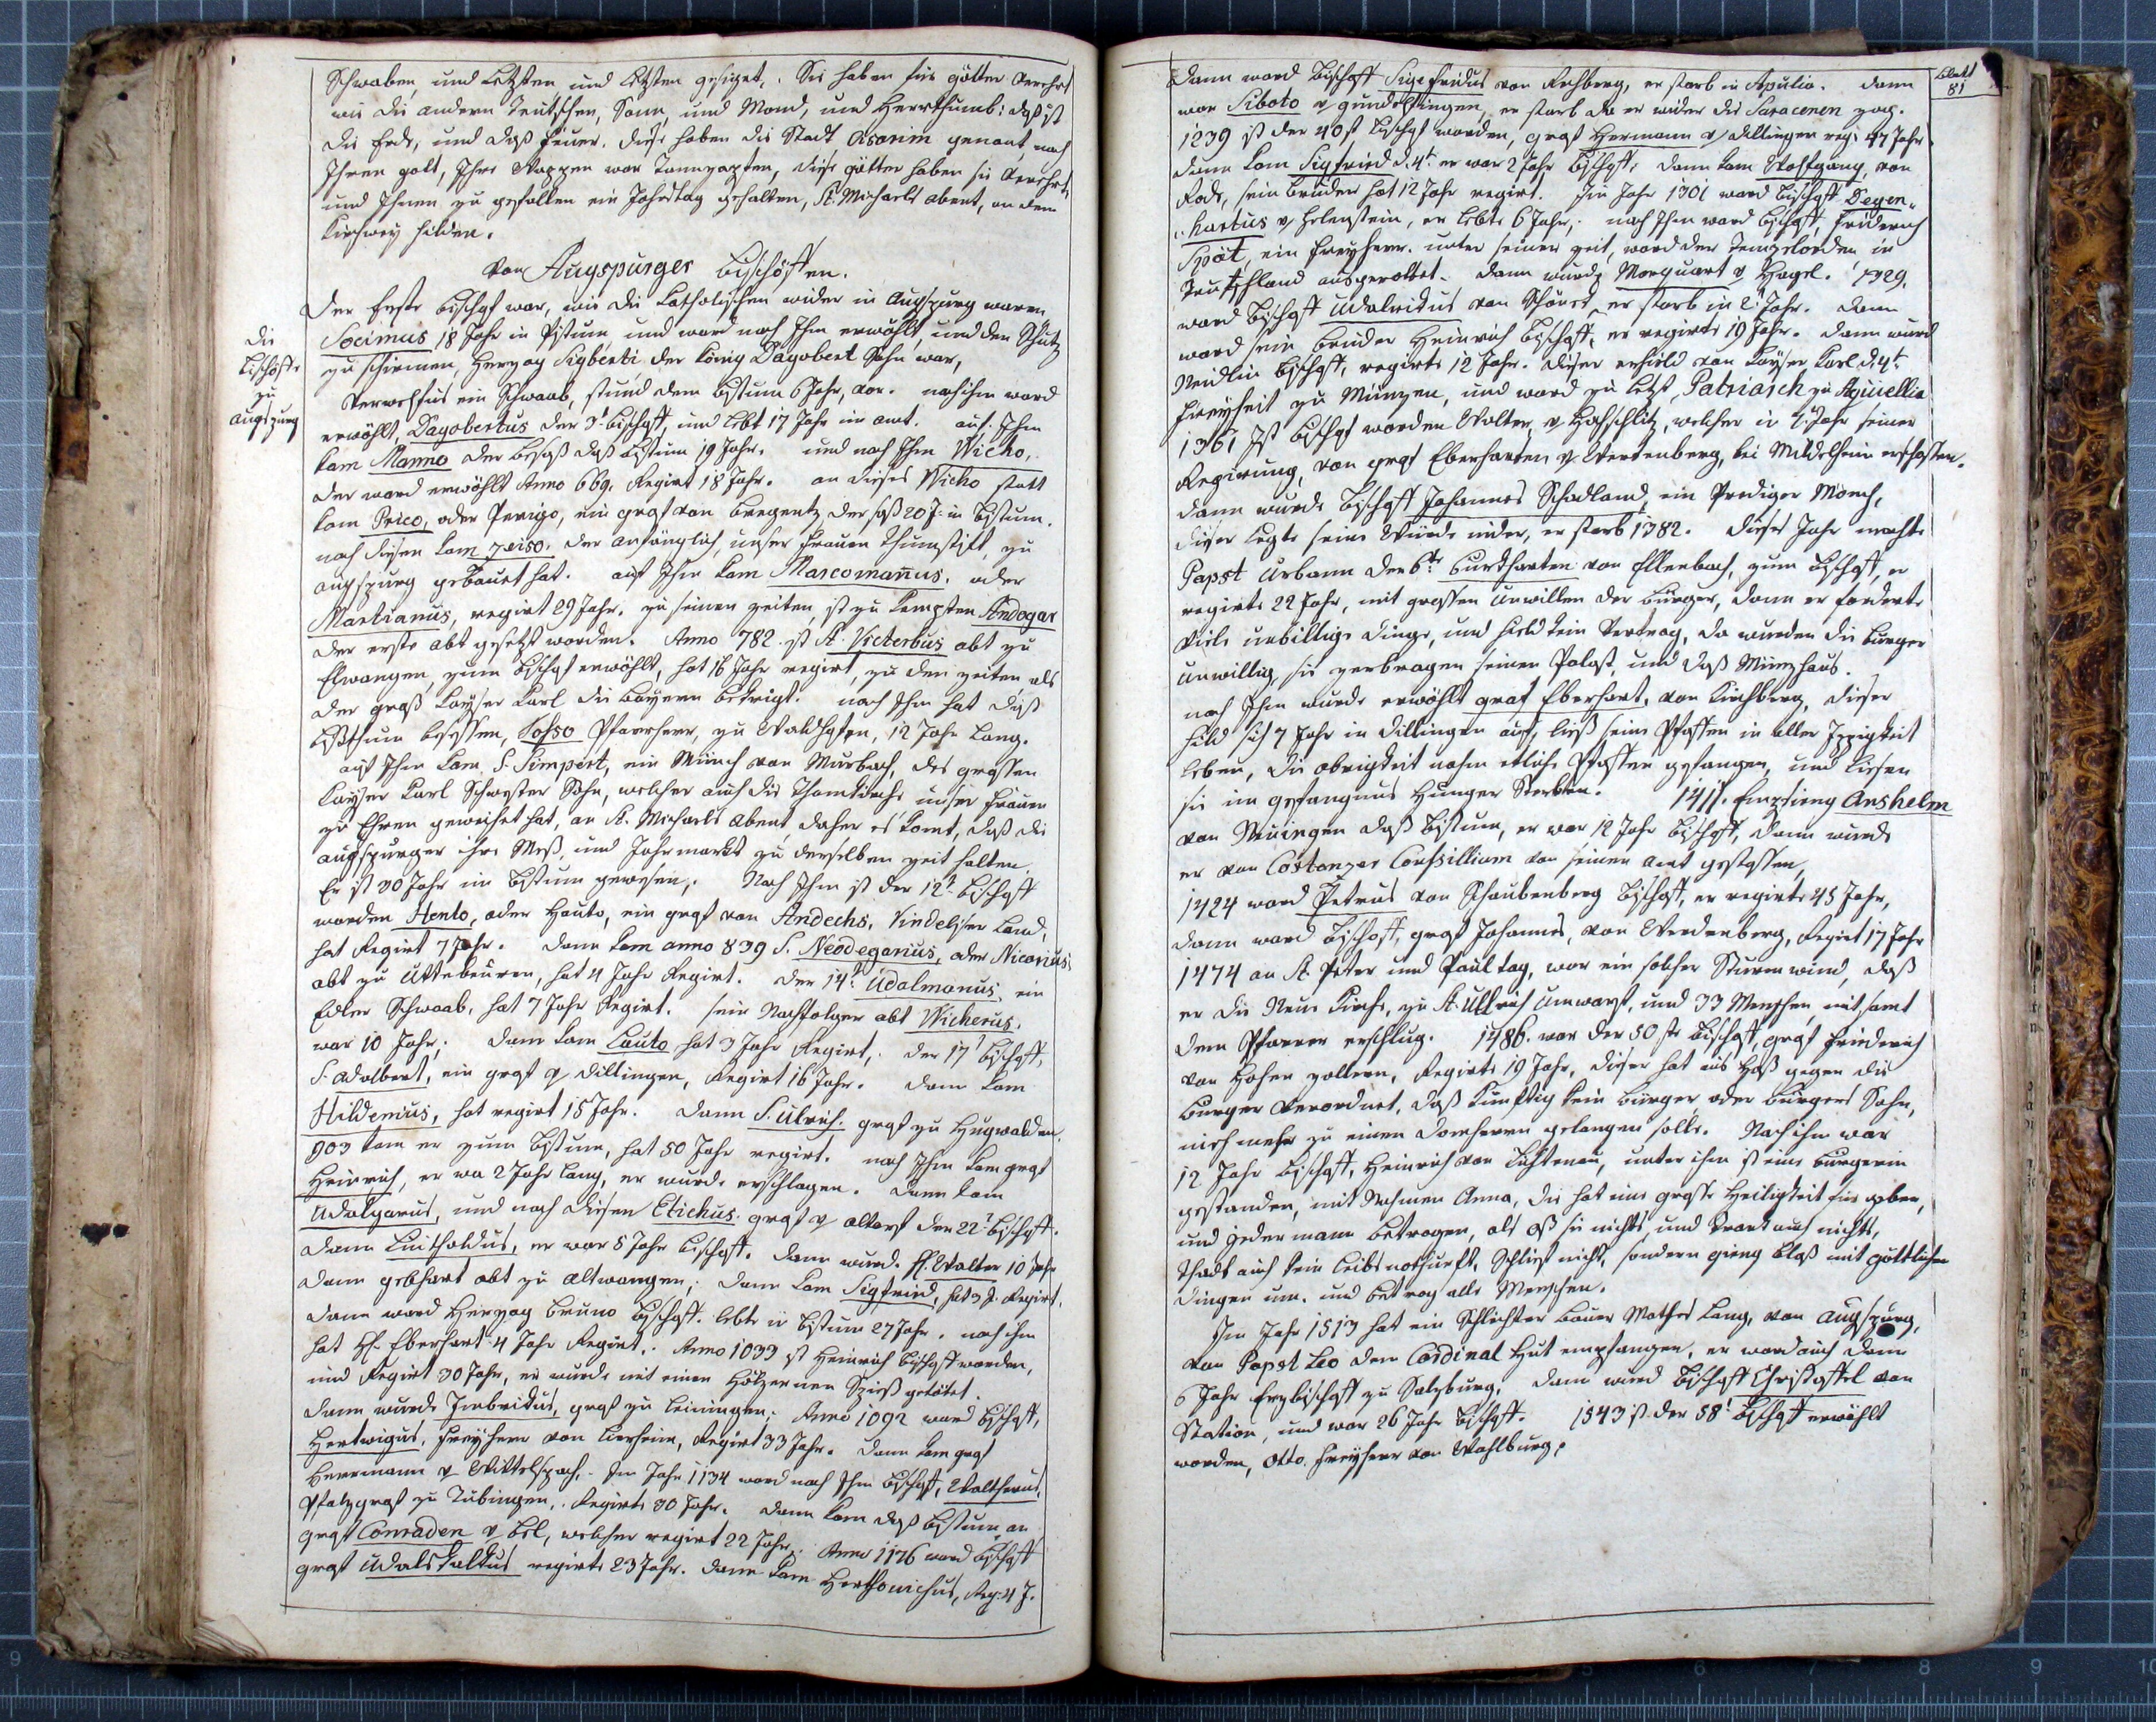 Schwaben, und letzten und letzten gesiget. Sie haben für götter Verehrt
wie die andern Teutschen, Sonn, und Mond, und Herrthumb: daß ist
die Erde, und daß Feuer. diese haben die Stadt Cisarim genant, nach
Ihren gott, Ihre Wappen war Tannzapfen, diese götter haben sie Verehrt
und Ihnen zu gefallen ein Jahrstag gehalten, St. Michaels abent, an dem
Kirchwey hilden.
Von Augspurger Bischöffen.
Der Erste Bischof war, wie die Catholischen wider in Augspurg waren
Die
Bischöffe
zu
Augspurg
Socimus 18 Jahr in Pistum, und ward nach Ihm erwählt, und den Schutz
zu schirmen, Herzog Sigberti, der König Dagobert Sohn war,
ein Schwaab, stund dem Bistum 6 Jahr, vor. nach ihm ward
erwählt, Dagobertus der 3t. Bischoff, und lebt 17 Jahr im amt. auf Ihm
kam Manno der besaß daß Bistum 19 Jahr. und nach Ihm Wicho,
der ward erwählt Anno 669. Regirt 18 Jahr. an dieses Wicho statt
kam Prico, oder Perigo, ein graf von Bregentz der saß 20 J. in Bistum.
nach diesen kam Zeiso. der anfänglich, unser Frauen Thumstift, zu
augspurg gebauet hat. auf Ihm kam Marcomañus. oder
Martianus, regirt 29 Jahr. zu seinen zeiten, ist zu Kempten Andogar
der erste abt gesetzt worden. Anno 782. ist St. Victerbus abt zu
Elwangen, zum Bischof erwählt, hat 16 Jahr regirt, zu den zeiten als
der groß Kayser Karl die Bayern bekrigt. nach Ihm hat daß
Bisthum besessen, Tosso Pfarrherr, zu Waldhofen, 12 Jahr lang.
auf Ihm kam S. Simpert, ein Münch von Murbach, des grossen
Kayser Karl Schwester Sohn, welcher auch die Thomkirche unser Frauen
zu Ehren geweihet hat, an St. Michaels abent, daher es komt, daß die
augspurger ihre Meß, und Jahrmarkt zu derselben zeit halten.
Er ist 30 Jahr im Bistum gewesen. Nach Ihm ist der 12t. Bischoff
worden Hento, oder Hauto, ein graf von Andechs, Vindelischer Land,
hat Regirt 7 Jahr. dann kam anno 839 S. Neodegarius, oder Nicarius
abt zu Uttebeuren, hat 4 Jahr Regirt. der 14t. Udalmanus, ein
Edler Schwaab, hat 7 Jahr Regirt. sein Nachfolger abt Wicherus.
war 10 Jahr. dann kam Lauto hat 3 Jahr Regirt,. der 17t Bischoff,
S. Adalbert, ein graf v Dillingen, Regirt 16 Jahr. dann kam
Hildemus, hat regirt 15 Jahr. dann S. Ulrich. graf zu Hugwalden.
903 kam er zum Bistum, hat 50 Jahr regirt. nach Ihm kam graf
Heinrich, er wa 2 Jahr lang, er wurde erschlagen. dann kam
Udalgarus, und nach diesen Etichus. graf v altorf den 22t. Bischoff.
dann Luitholdus, er war 8 Jahr Bischoff. dann wurd. H. Walter 10 Jahr
dann gebhart abt zu altwangen; dann kam Sigfried, hat 3 J. Regirt.
dann ward Herzog Bruno Bischoff. lebte in Bistum 27 Jahr. nach ihm
hat H. Eberhart 4 Jahr Regirt. Anno 1033 ist Heinrich Bischoff worden,
und Regirt 30 Jahr, er wurde mit einen Hölzernen Spieß getötet.
dann wurde Imbricus, graf zu Leiningen; Anno 1092 ward Bischoff,
Hertwigus, Freyherr von Lierheim, Regirt 33 Jahr. dann kam graf
Herrmann v Wittelspach,. Im Jahr 1134 ward nach Ihm Bischoff, Waltherus,
Pfalzgraf zu Tübingen,. Regirte 30 Jahr. dann kam daß Bistum an
graf Conraden v Bel, welcher regirt 22 Jahr,. Anno 1176 ward Bischoff
graf Udalskalkus regirte 23 Jahr. dann kam Harthowichus, Reg: 4 J.
Blatt
81
dann ward Bischoff Sigefridus von Rechberg, er starb in Apulia. dann
war Siboto v gundelfingen, er starb da er wider die Saracenen zog.
1239 ist der 40st Bischof worden, graf Hermann v Dillingen reg: 47 Jahr
dann kam Sigfried d. 4t. er war 2 Jahr Bischoff; dann kam Wolfgang, von
Rode, sein bruder hat 12 Jahr regirt. Im Jahr 1301 ward Bischoff Degen-
hartus v Helenstein, er lebte 6 Jahr,. nach Ihm ward Bischoff, Friderich
Spät, ein Freyherr. unter seiner zeit, ward der Tempelorden in
Teutschland ausgerottet. dann wurde Marquart v Hagel. 1329.
ward Bischoff Udalricus von Schöneck er starb in 2. Jahr. dann
ward sein bruder Heinrich Bischoff, er regirte 19 Jahr. dann wurd
Neidlin Bischoff, regirte 12 Jahr. dieser erhield von Kayser Karl d. 4t.
Freyheit zu Münzen, und ward zu letzt, Patriarch zu Aquellia
1361 Ist Bischof worden Walter, v Hohschlitz, welcher in 4. Jahr seiner
Regirung, von graf Eberharten v. Wertenberg, bei Mildelheim erschossen.
dann wurde Bischoff Johannes Schadland, ein Prediger Mönch,
dieser legte seine Würde nider, er starb 1382. dieses Jahr machte
Papst Urbann der 6te Burkharten von Ellenbach, zum Bischoff, er
regirte 22 Jahr, mit grossen Unwillen der Bürger, dann er forderte
Viele unbillige dinge, und hield kein Vertrag, da wurden die Burger
unwillig, sie zerbragen seinen Palast, und daß Münzhaus.
nach Ihm wurde erwählt graf Eberhart, von Kirchberg, dieser
hild sich 7 Jahr in Dillingen auf, ließ seine Pfaffen in aller Ippigkeit
leben, die obrigkeit nahm etliche Pfaffen gefangen, und liesen
sie im gefangnus Hunger Sterben. 1411. Empfieng Anshelm
von Neningen daß Bistum, er war 12 Jahr Bischoff, dann wurde
er von Costanzer Conßillium von seinen amt gestossen,
1424 ward Petrus von Schaubenberg Bischoff, er regirte 45 Jahr,
dann ward Bischoff, graf Johannes, von Werdenberg, Regirt 17 Jahr
1474 an St. Peter und Paul tag, war ein solcher Sturmwind, daß
er die Neue Kirche, zu St. Ullrich umwarf, und 33 Menschen, mit samt
dem Pfarrer erschlug. 1486. war der 50ste Bischoff, graf Friederich
von Hohen zollern, Regirte 19 Jahr, dieser hat aus Haß gegen die
Burger Verordnet, daß künftig kein Bürger, oder Bürgers Sohn,
nich mehr zu einen Domherrn gelangen solle. Nach ihm war
12 Jahr Bischoff, Heinrich von Lichtenau, unter ihm ist eine Burgerin
gestanden, mit Nahmen Anna, die hat eine grosse Heiligkeit für geben,
und jedermann betrogen, als aß sie nichts, und trank auch nichts,
thadt auch kein Leibs nothurft, Schlief nicht, sondern gieng bloß mit göttlichen
dingen um. und betrog alle Menschen.
Im Jahr 1513 hat ein Schlichter Bauer Mathes Lang, von Augspurg,
von Papst Leo den Cardinal Hut empfangen, er ward auch dann
6 Jahr Erzbischoff zu Salzburg. dann wurd Bischoff Christoffel von
Station, und war 26 Jahr Bischoff. 1543 ist der 58t Bischof erwählt
worden, Otto. Freyherr von Wahlburg.